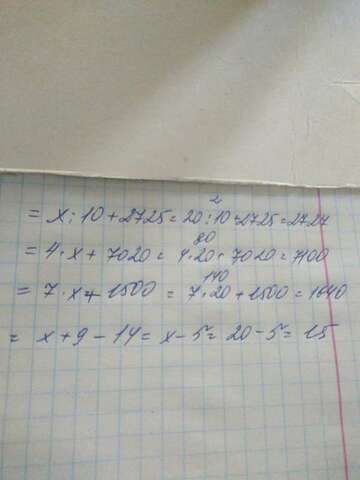 2
= x : 10 + 2725 = 20 : 10 + 2725 = 2727
80
= 4 · x + 7020 = 4 · 20 + 7020 = 7100
140
= 7 · x + 1500 = 7 · 20 + 1500 = 1640
= x + 9 - 14 = x - 5 = 20 - 5 = 15